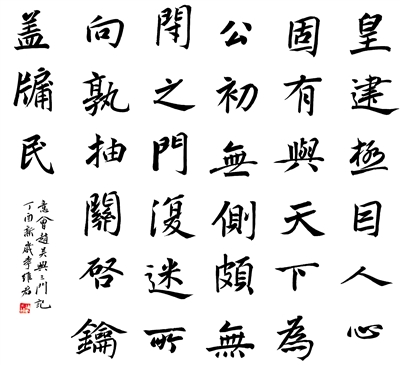 皇建極自人心
固有與天下為
公初無側頗無
閈之門復迷所
向孰抽關啓鑰
盖牖民
意會趙吳興三門記
丁酉新歲李維